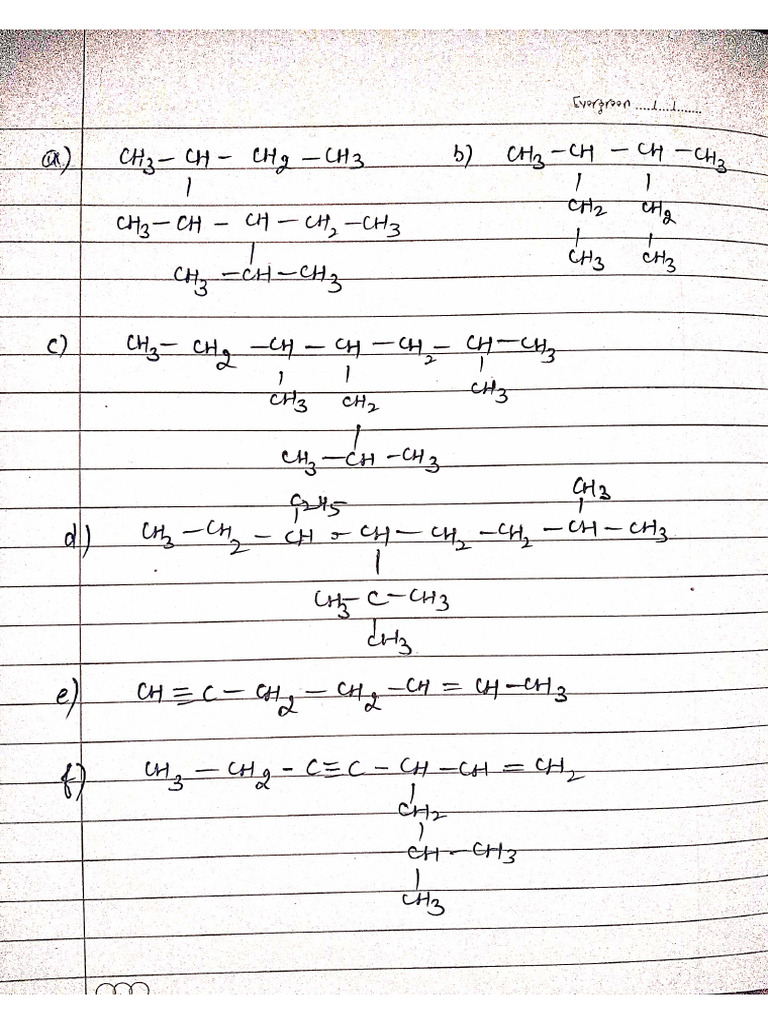 Evergreen ....../....../......
a) CH3 – CH – CH2 – CH3
|
CH3 – CH – CH – CH2 – CH3
|
CH3 – CH – CH3
b) CH3 – CH – CH – CH3
| |
CH2 CH2
| |
CH3 CH3
c) CH3 – CH2 – CH – CH – CH2 – CH – CH3
| | |
CH3 CH2 CH3
|
CH3 – CH – CH3
C2H5 CH3
| |
d) CH3 – CH2 – CH – CH – CH2 – CH2 – CH – CH3
|
CH3 – C – CH3
|
CH3
e) CH ≡ C – CH2 – CH2 – CH = CH – CH3
f) CH3 – CH2 – C ≡ C – CH – CH = CH2
|
CH2
|
CH – CH3
|
CH3